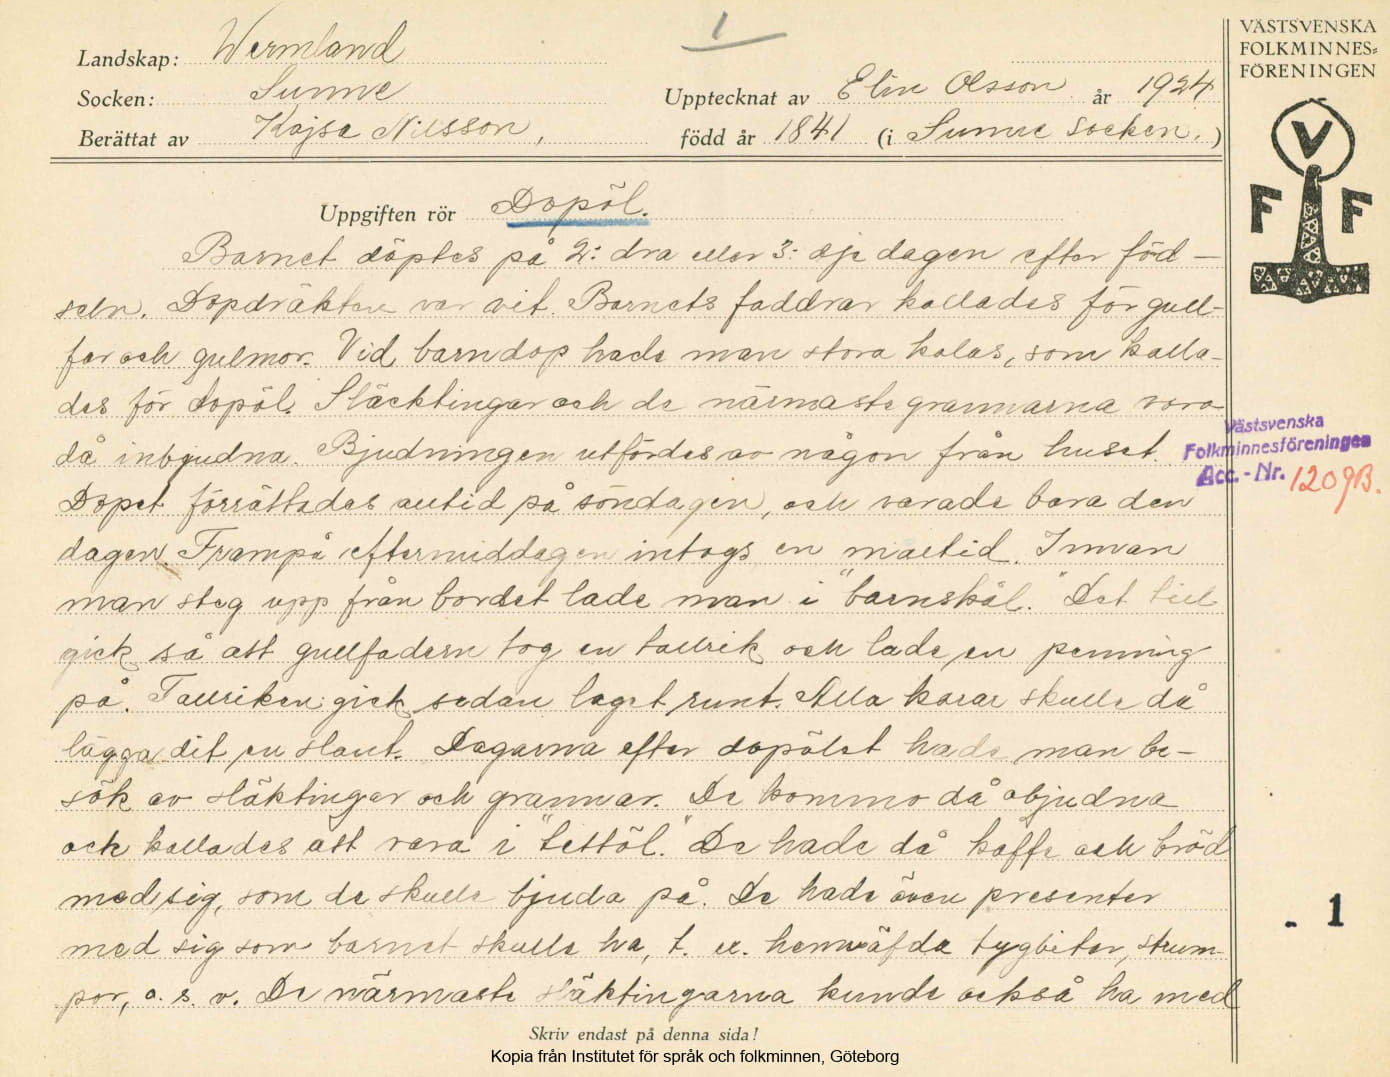 1
Landskap: Wermland
Socken: Sunne
Berättat av Kajsa Nilsson,
Upptecknat av Elin Olsson år 1924
född år 1841 (i Sunne socken.)
VÄSTSVENSKA
FOLKMINNES=
FÖRENINGEN
V
F F
Uppgiften rör Dopöl.
Barnet döptes på 2:dra eller 3:dje dagen efter föd-
seln. Dopdräkten var vit. Barnets faddrar kallades för gull-
far och gulmor. Vid barndop hade man stora kalas, som kalla-
des för dopöl. Släcktingar och de närmaste grannarna voro
då inbjudna. Bjudningen utfördes av någon från huset.
Dopet förrättades alltid på söndagen, och varade bara den
dagen. Frampå eftermiddagen intogs en måltid. Innan
man steg upp från bordet lade man i "barnskål." Det till
gick så att gullfadern tog en tallrik och lade en penning
på. Tallriken gick sedan laget runt. Alla karar skulle då
lägga dit en slant. Dagarna efter dopölet hade man be-
sök av släktingar och grannar. De kommo då objudna
och kallades att vara i "tettöl." De hade då kaffe och bröd
med sig, som de skulle bjuda på. De hade även presenter
med sig som barnet skulle ha, t. ex. hemväfda tygbitar, strum-
por, o. s. v. De närmaste släktingarna kunde också ha med
Västsvenska
Folkminnesföreningen
Acc.-Nr. 1209B.
- 1
Skriv endast på denna sida!
Kopia från Institutet för språk och folkminnen, Göteborg